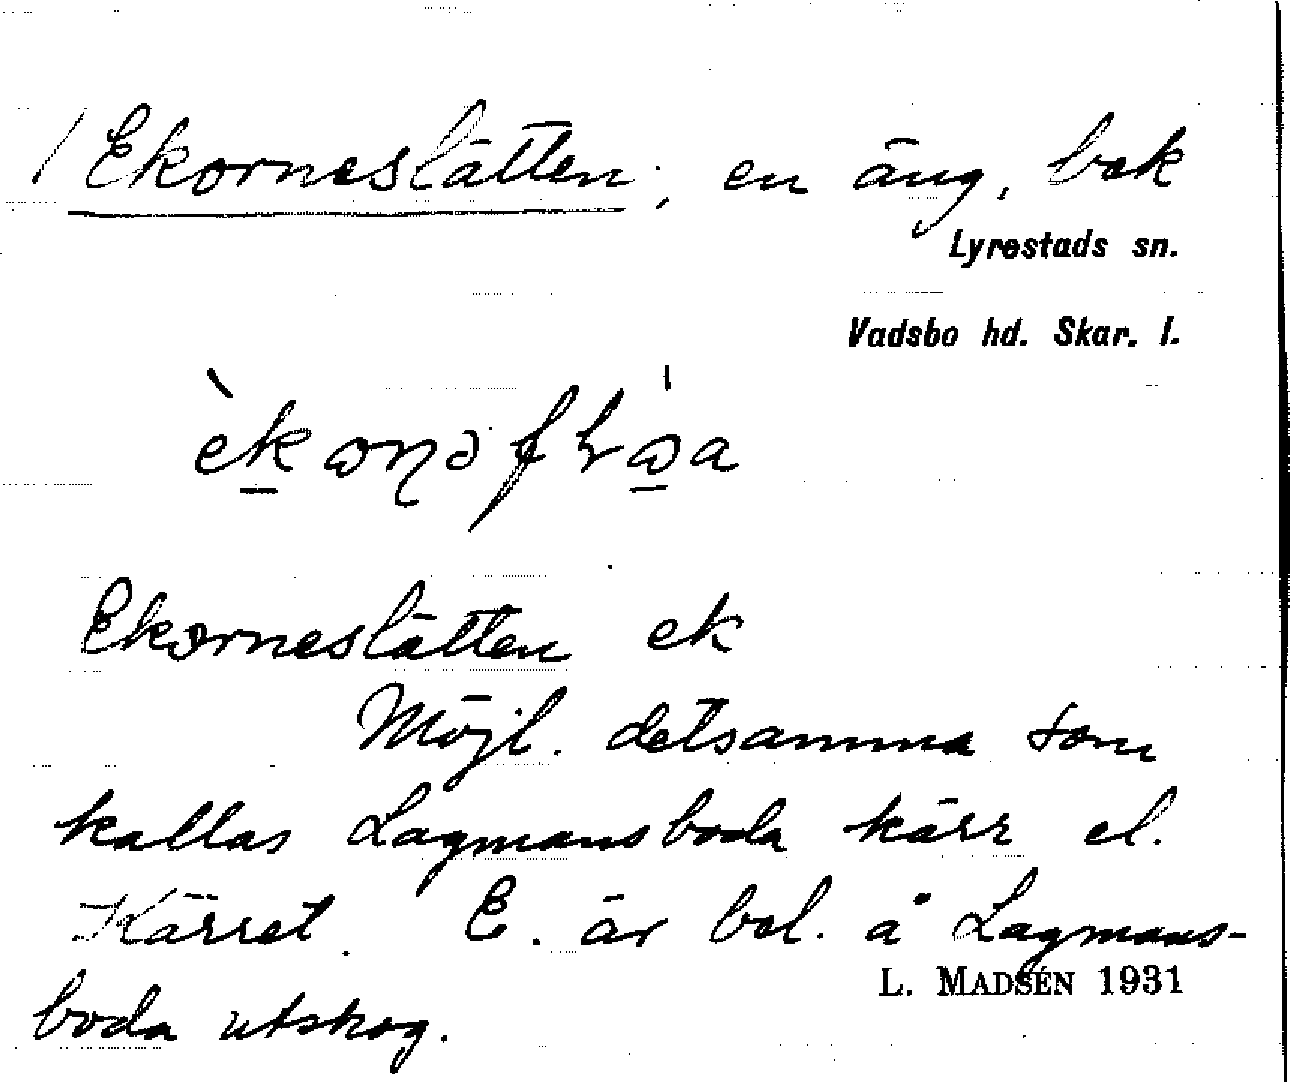 / Ekorneslätten; en äng, bek
Lyrestads sn.
Vadsbo hd. Skar. l.
Ekorneslätten ek
Möjl. detsamma som
kallas Lagmansboda kärr el.
Kärret. E. är bel. å Lagmans-
L. MADSÉN 1931
boda utskog.